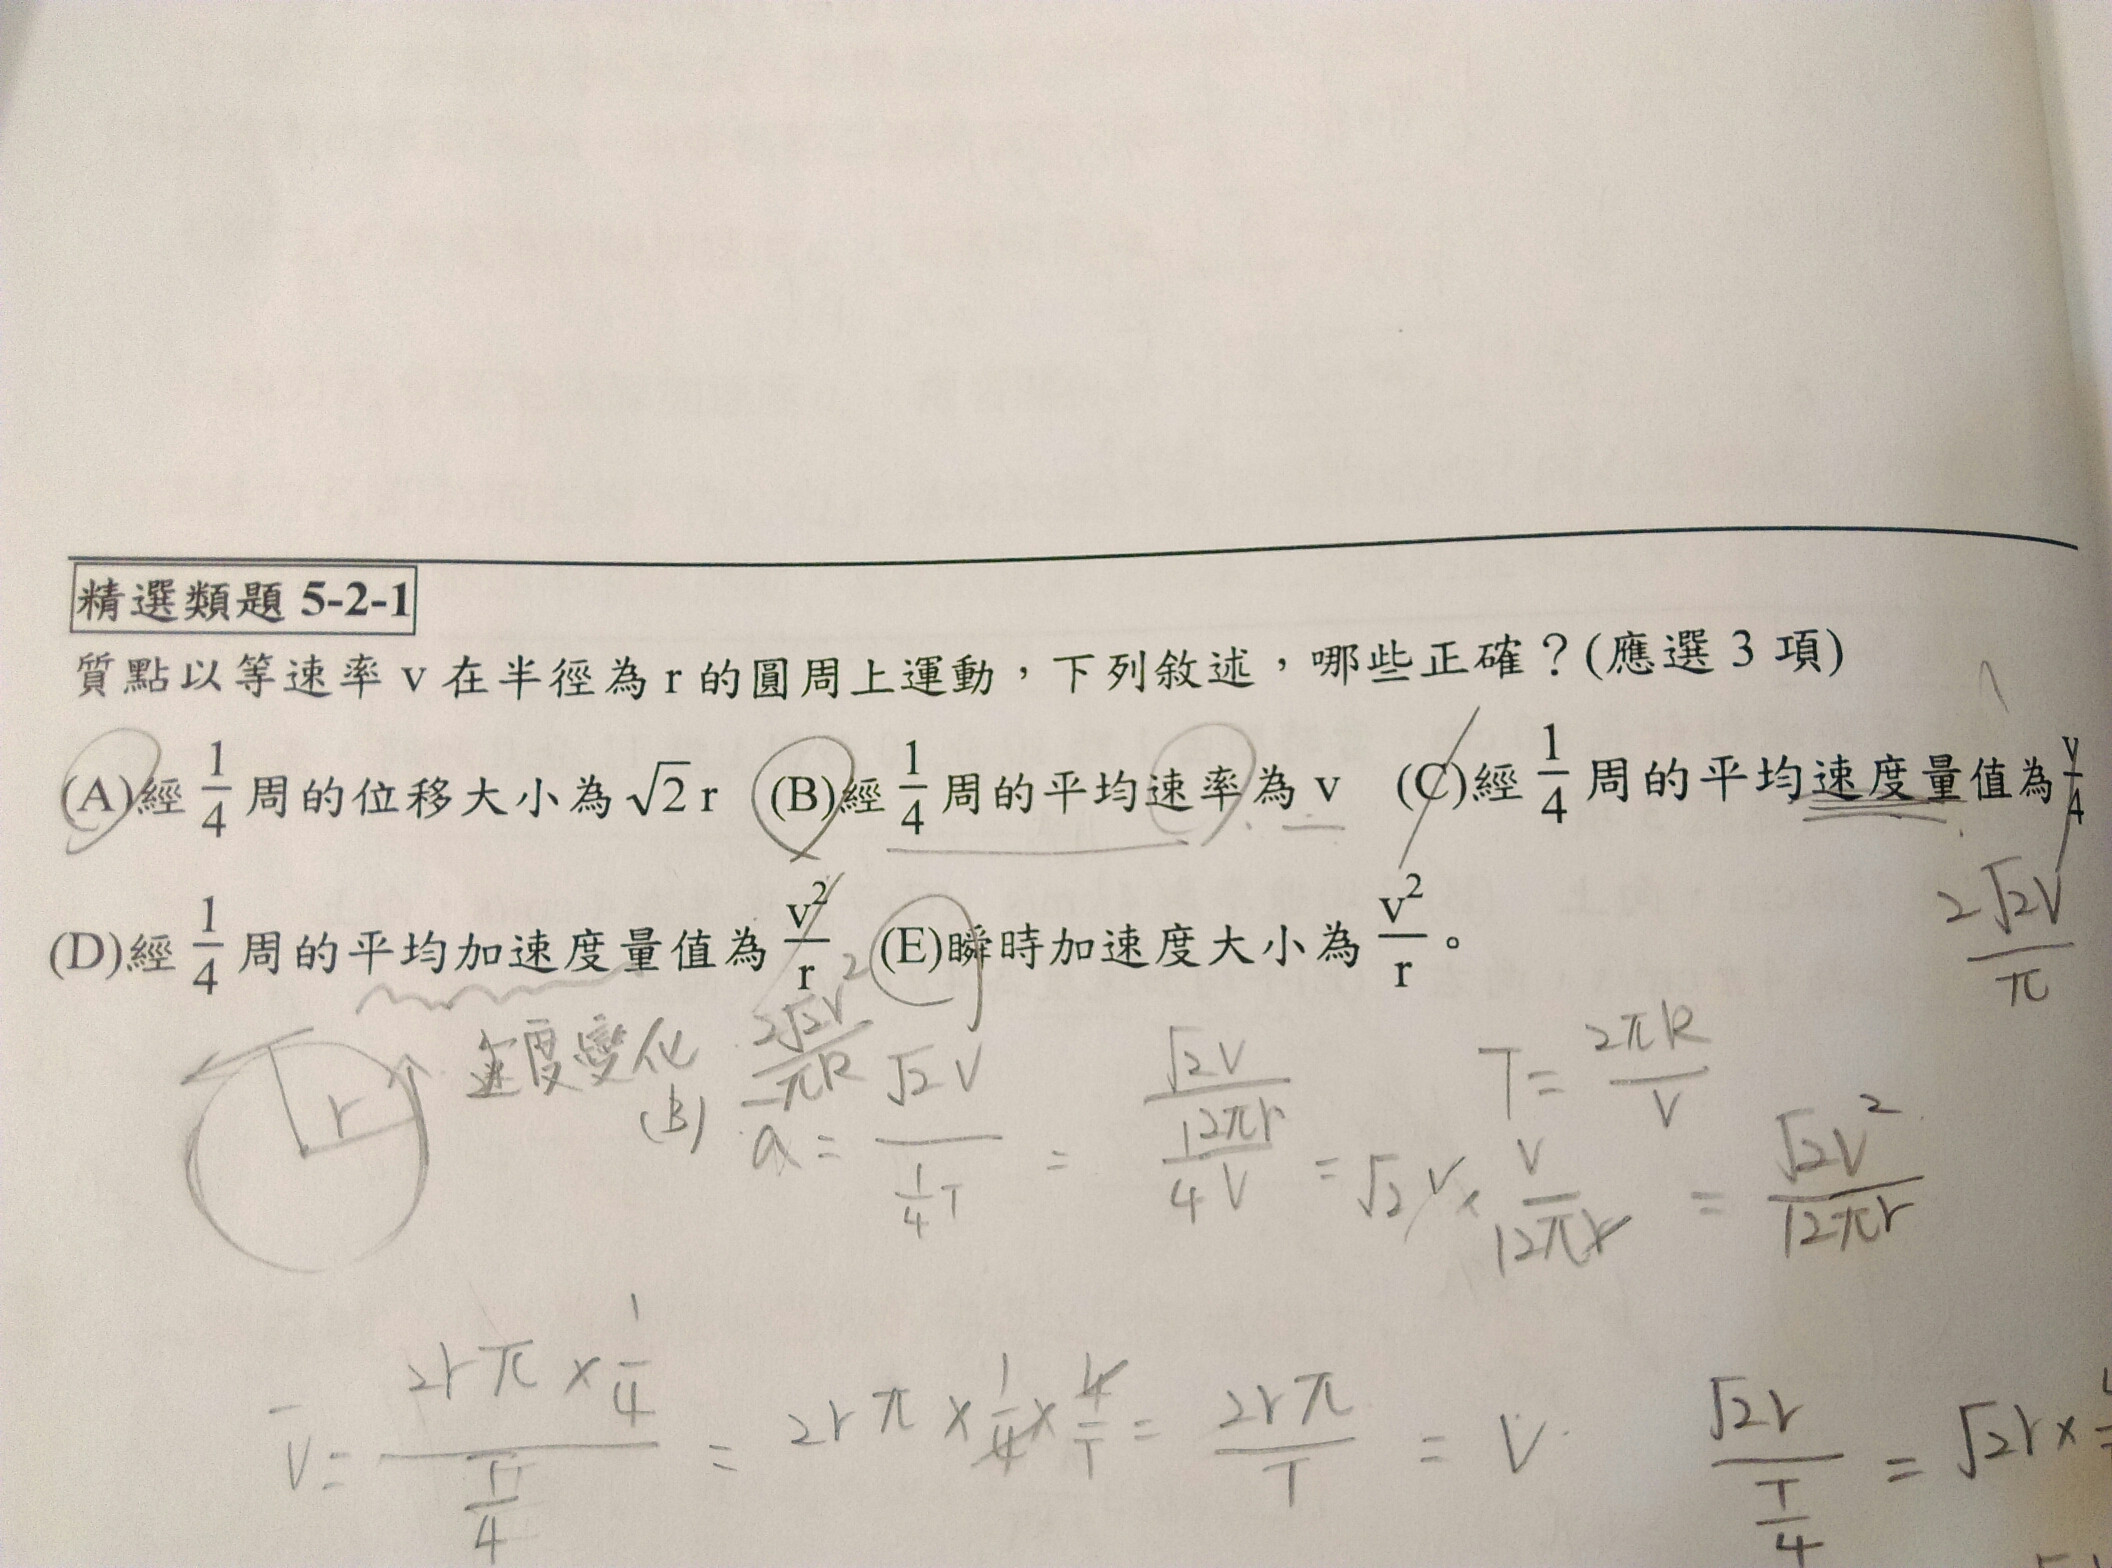 精選類題 5-2-1
質點以等速率 v 在半徑為 r 的圓周上運動，下列敘述，哪些正確？(應選 3 項)
(A)經 1/4 周的位移大小為 √2 r (B)經 1/4 周的平均速率為 v (C)經 1/4 周的平均速度量值為 v/4
2√2V/π
(D)經 1/4 周的平均加速度量值為 v²/r (E)瞬時加速度大小為 v²/r。
r
速度變化
2√2V²/πR
T = 2πR/V
a = √2V / (1/4 T) = √2V / (12πr/4V) = √2V × V/12πr = √2V²/12πr
V = (2rπ × 1/4) / (T/4) = 2rπ × 1/4 × 4/T = 2rπ/T = V
√2r / (T/4) = √2r ×